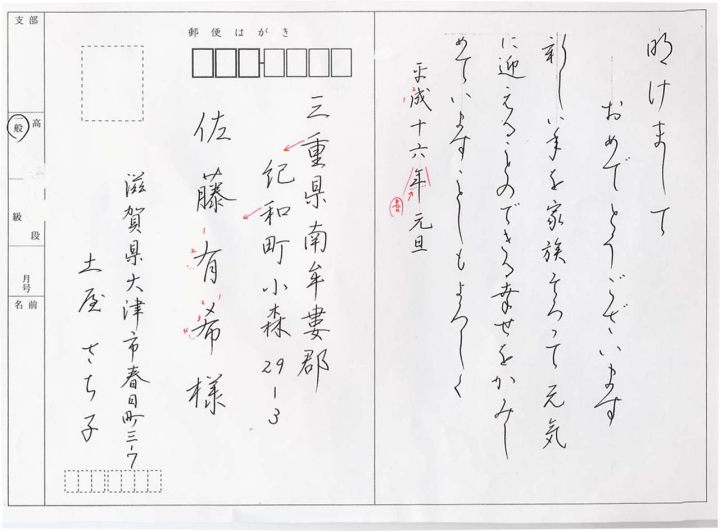 明けまして
おめでとうございます
新しい年を家族そろって元気
に迎えることのできる幸せをかみし
めています ことしもよろしく
平成十六年元旦
郵便はがき
三重県南牟婁郡
紀和町小森29-3
佐藤有希様
滋賀県大津市春日町三-ワ
土屋さち子
支部
高
一般
級
段
月号
名前